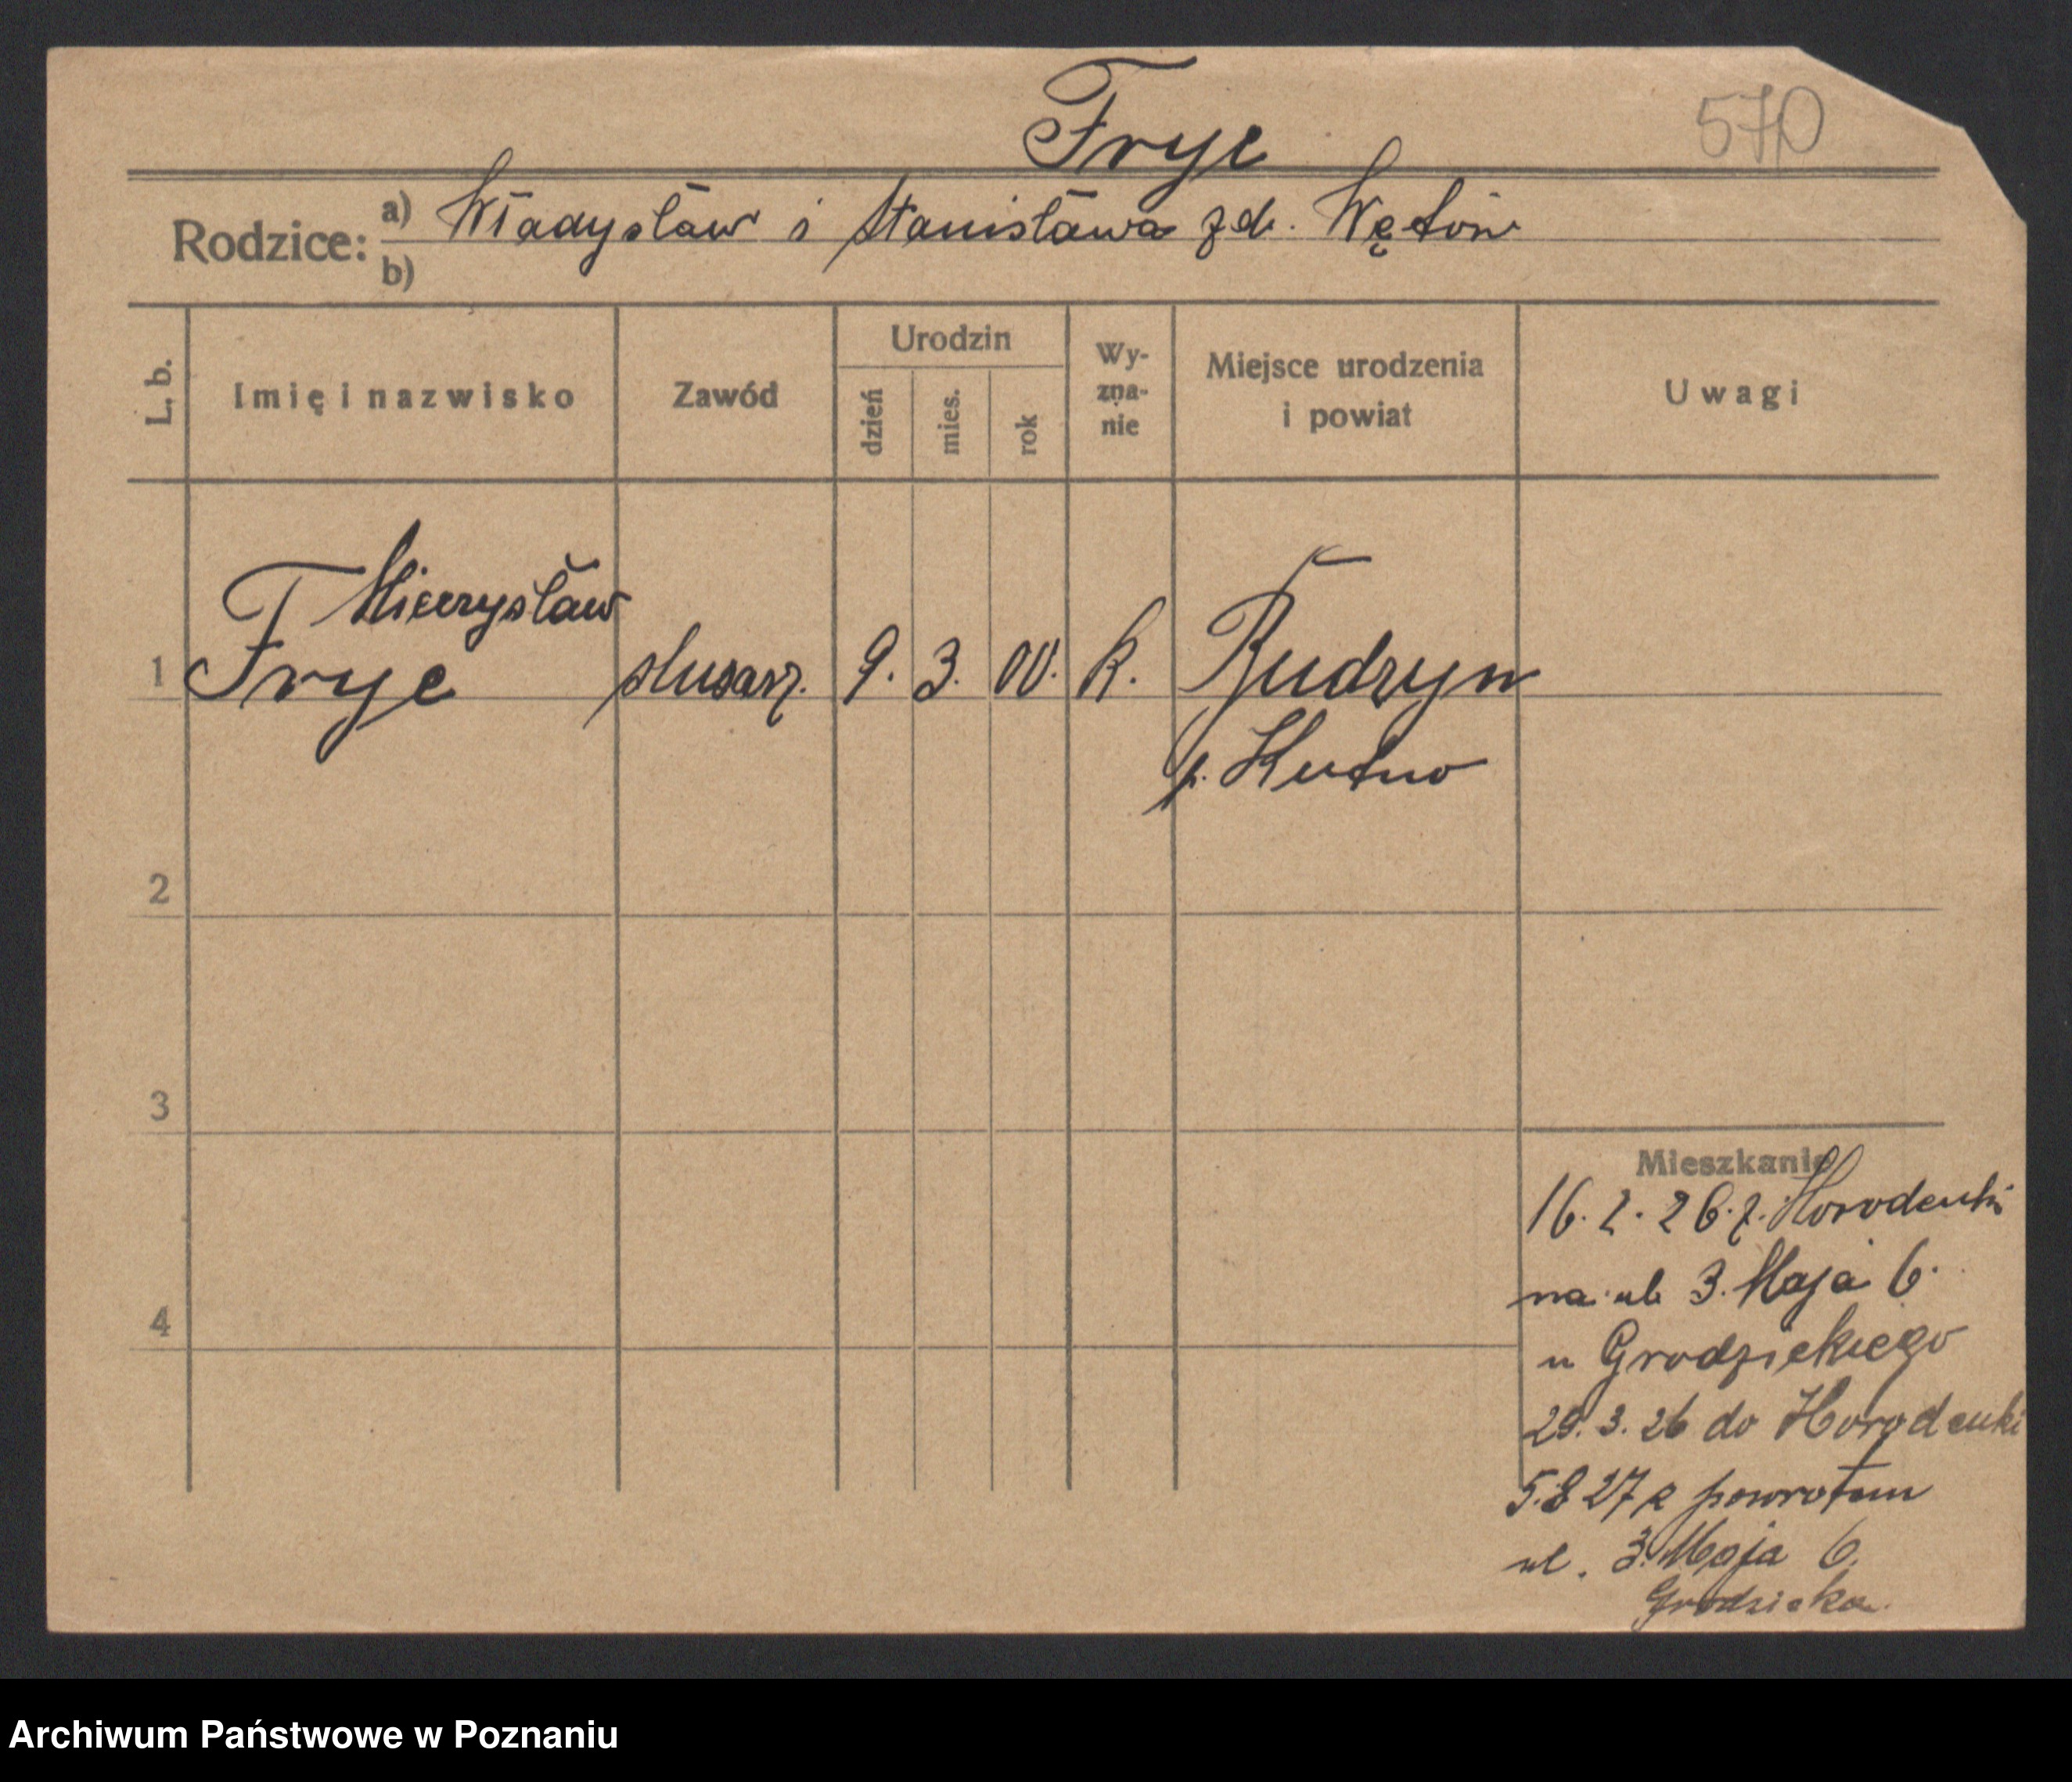 Fryc
570
Rodzice: a) Władysław i Stanisława z d. Wętów
b)
L. b. Imię i nazwisko Zawód Urodzin dzień mies. rok Wyzna-nie Miejsce urodzenia i powiat Uwagi
Mieczysław
1 Fryc slusarz. 9. 3. 00. k. Budzyn
p. Kutno
2
3
Mieszkanie
16. 2. 26. z. Horodenki
na ul. 3. Maja 6.
4
u Grodzickiego
29. 3. 26 do Horodenki
5.8 27 z powrotem
ul. 3. Maja 6.
Grodzicka.
Archiwum Państwowe w Poznaniu